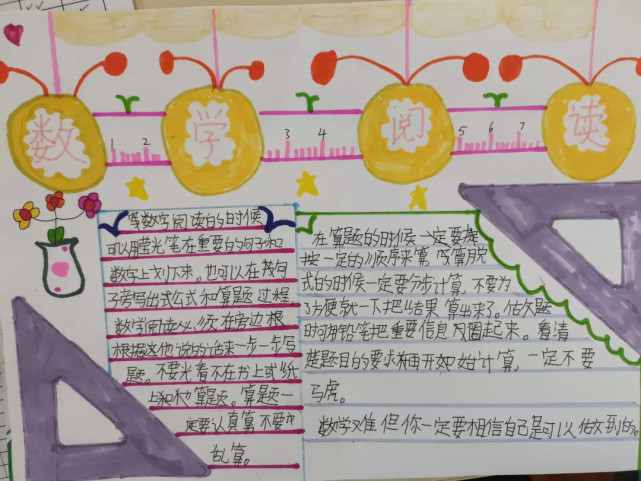 数学阅读
1 2 3 4 5 6 7
写数学阅读的时候
可以用萤光笔在重要的句子和
数字上划下来。也可以在每句
子旁写出式公式和算题过程,
数学阅读必须在旁边根
根据这他说的话来一步一步写
题。不要光看不在书上或纸
上和木也算是页。算是页一
定要认真算不要
乱算。
在算题的时候一定要
按一定的顺序来算,
式的时候一定要分步计算,不要为
了方便就一下把结果算出来了。做大题
时可用铅笔把重要信息 圈起来。看清
楚题目的要求再开始计算,一定不要
马虎。
数学难但你一定要相信自己是可以做到的。